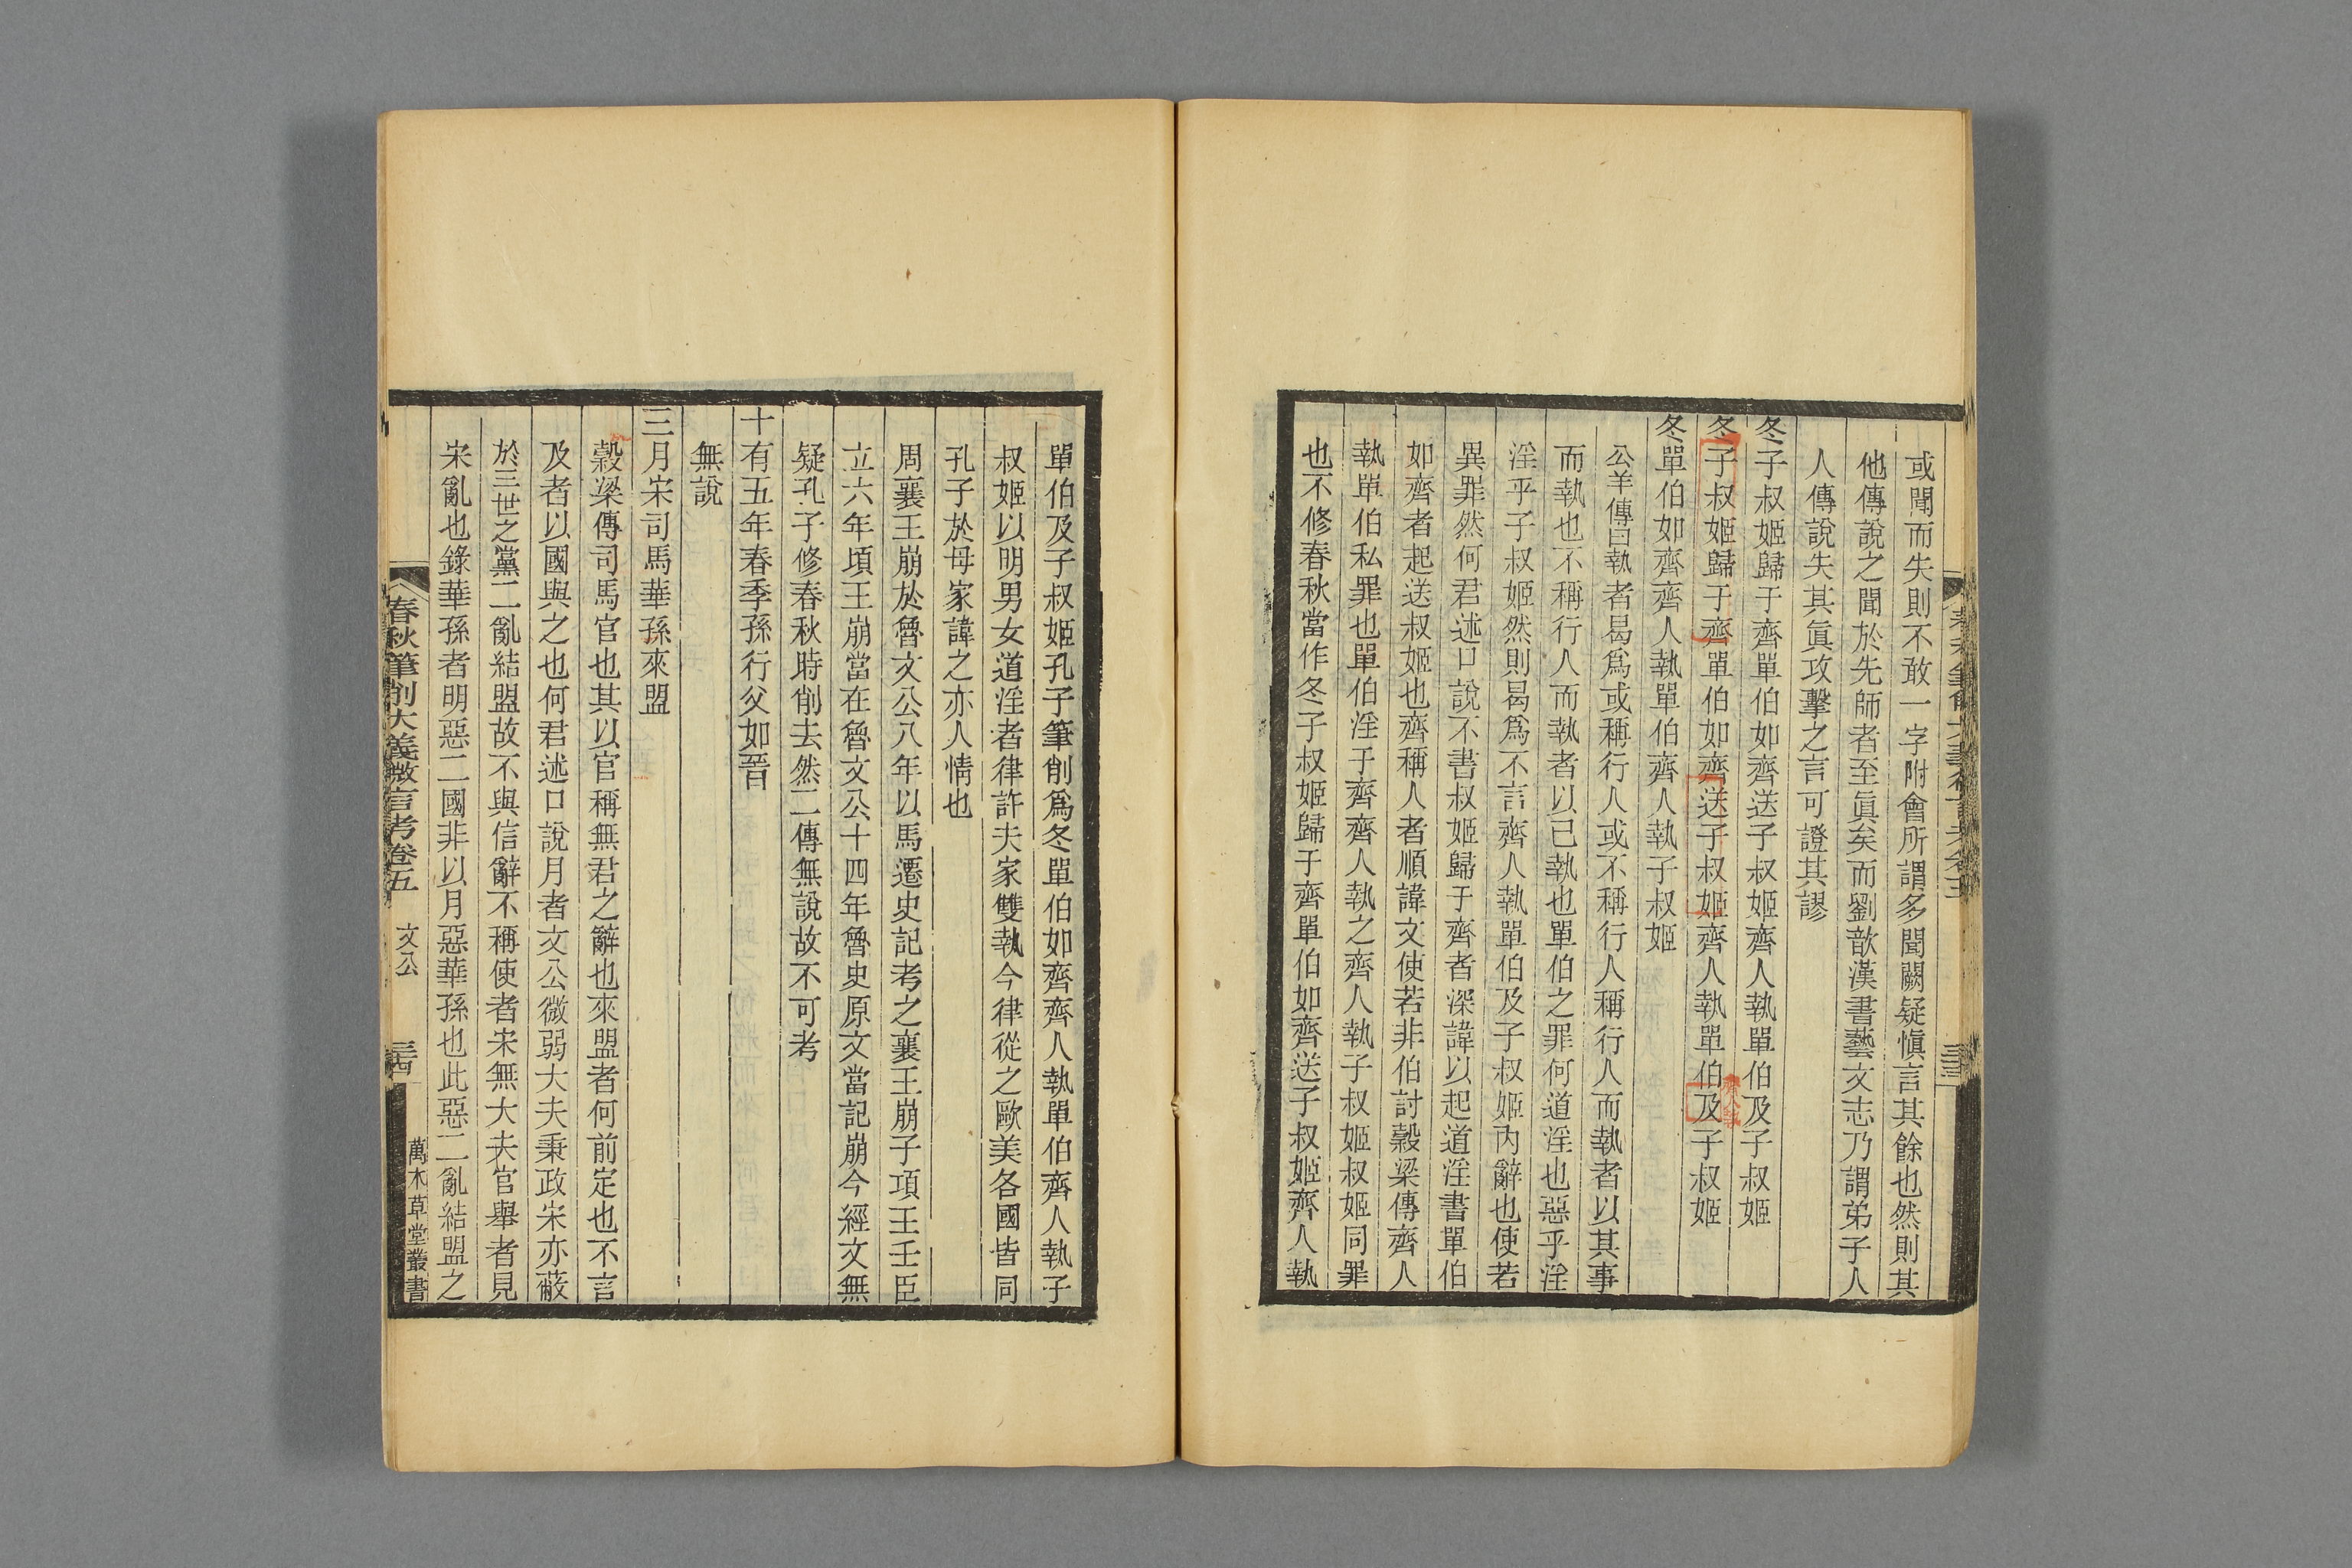 或聞而失則不敢一字附會所謂多聞闕疑愼言其餘也然則其
他傳說之聞於先師者至眞矣而劉歆漢書藝文志乃謂弟子人
人傳說失其眞攻擊之言可證其謬
冬子叔姬歸于齊單伯如齊送子叔姬齊人執單伯及子叔姬
冬子叔姬歸于齊單伯如齊送子叔姬齊人執單伯及子叔姬
齊人執
冬單伯如齊齊人執單伯齊人執子叔姬
公羊傳曰執者曷爲或稱行人或不稱行人稱行人而執者以其事
而執也不稱行人而執者以已執也單伯之罪何道淫也惡乎淫
淫乎子叔姬然則曷爲不言齊人執單伯及子叔姬內辭也使若
異罪然何君述口說不書叔姬歸于齊者深諱以起道淫書單伯
如齊者起送叔姬也齊稱人者順諱文使若非伯討穀梁傳齊人
執單伯私罪也單伯淫于齊齊人執之齊人執子叔姬叔姬同罪
也不修春秋當作冬子叔姬歸于齊單伯如齊送子叔姬齊人執
單伯及子叔姬孔子筆削爲冬單伯如齊齊人執單伯齊人執子
叔姬以明男女道淫者律許夫家雙執今律從之歐美各國皆同
孔子於母家諱之亦人情也
周襄王崩於魯文公八年以馬遷史記考之襄王崩子項王壬臣
立六年項王崩當在魯文公十四年魯史原文當記崩今經文無
疑孔子修春秋時削去然二傳無說故不可考
十有五年春季孫行父如晉
無說
三月宋司馬華孫來盟
穀梁傳司馬官也其以官稱無君之辭也來盟者何前定也不言
及者以國與之也何君述口說月者文公微弱大夫秉政宋亦蔽
於三世之黨二亂結盟故不與信辭不稱使者宋無大夫官舉者見
宋亂也錄華孫者明惡二國非以月惡華孫也此惡二亂結盟之
春秋筆削大義微言考卷五 文公 三四 萬木草堂叢書